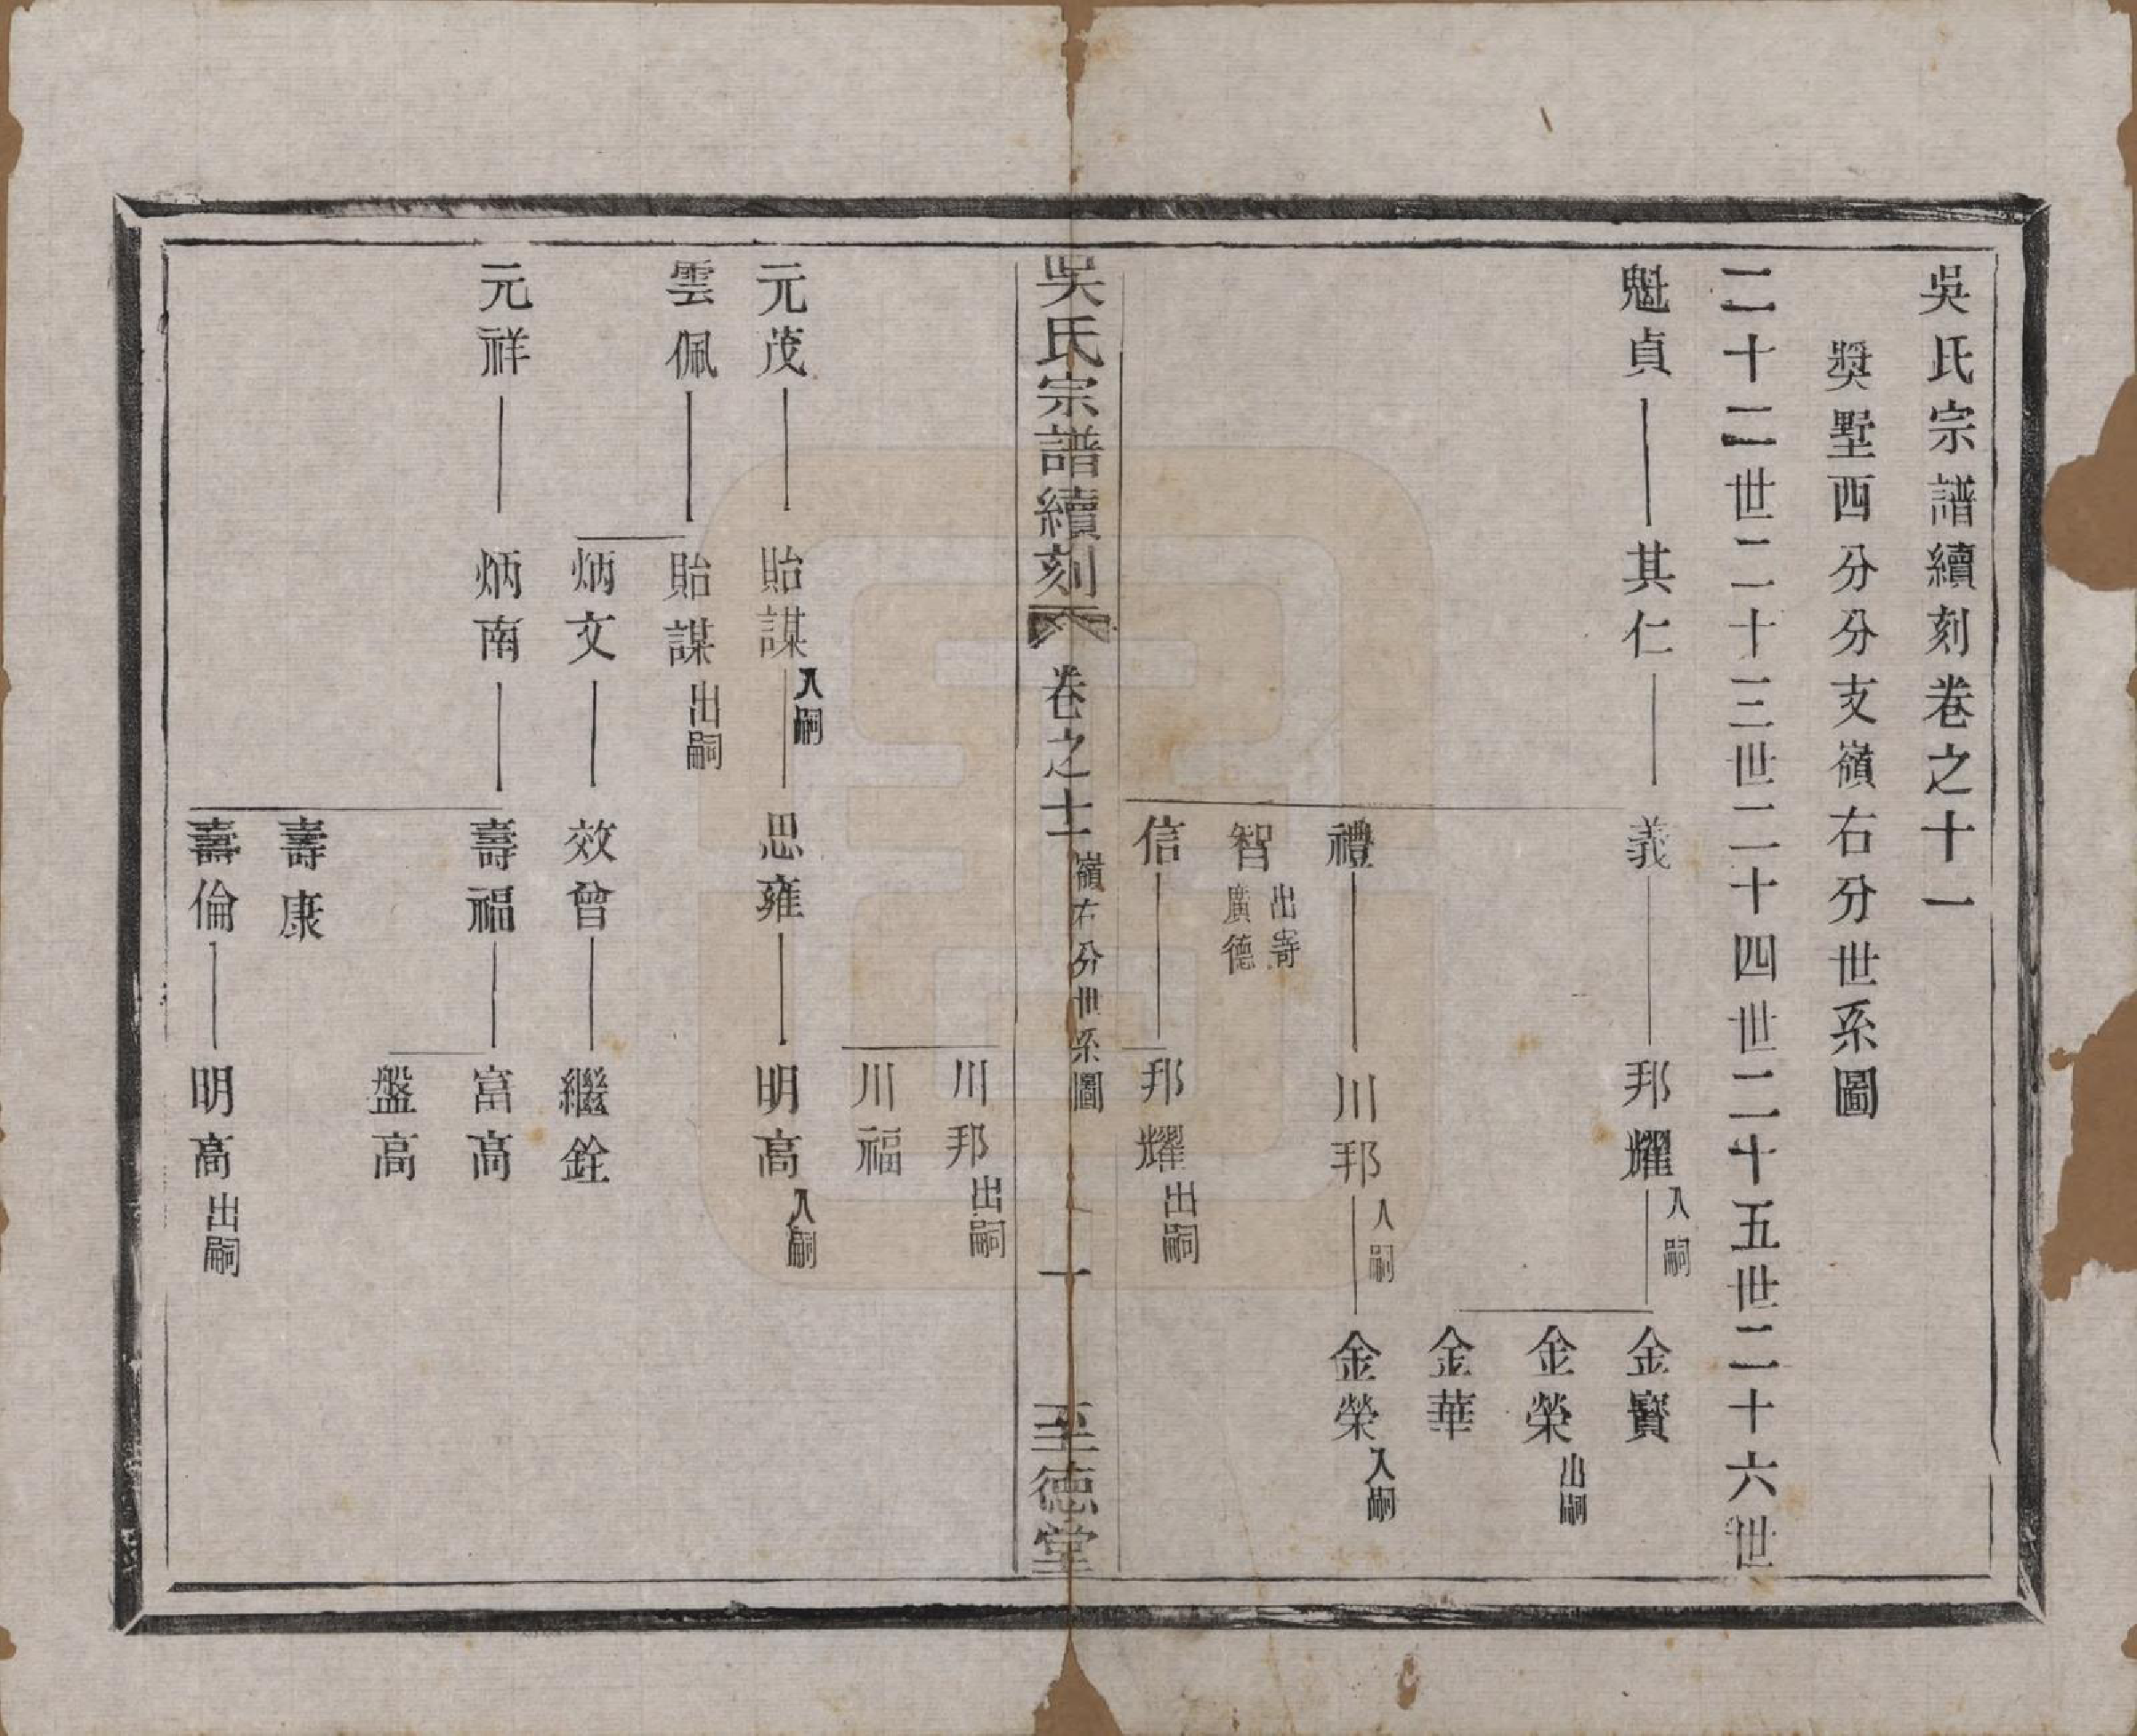 吳氏宗譜續刻卷之十一
奬墅西分分支嶺右分世系圖
二十二世二十三世二十四世二十五世二十六世
魁貞 其仁 義 邦耀入嗣 金寶
金榮出嗣
金華
禮 川邦入嗣 金榮入嗣
智出寄廣德
信 邦耀出嗣
吳氏宗譜續刻 卷之十一 嶺右分世系圖 一 至德堂
川邦出嗣
川福
元茂 貽謀入嗣 思雍 明高入嗣
雲佩 貽謀出嗣
炳文 效曾 繼銓
元祥 炳南 壽福 富高
盤高
壽康
壽倫 明高出嗣